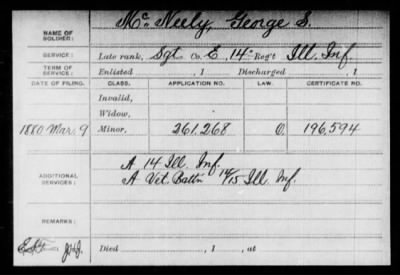 NAME OF SOLDIER: McNeely, George S.
SERVICE: Late rank, Sgt Co. E, 14" Reg't Ill. Inf.
TERM OF SERVICE: Enlisted , 1 Discharged , 1
DATE OF FILING. CLASS. APPLICATION NO. LAW. CERTIFICATE NO.
Invalid,
Widow,
1880 Mar. 9 Minor, 261.268 O. 196.594
ADDITIONAL SERVICES: A 14 Ill. Inf.
A Vet. Battn 14/15 Ill. Inf.
REMARKS:
Died , 1 , at